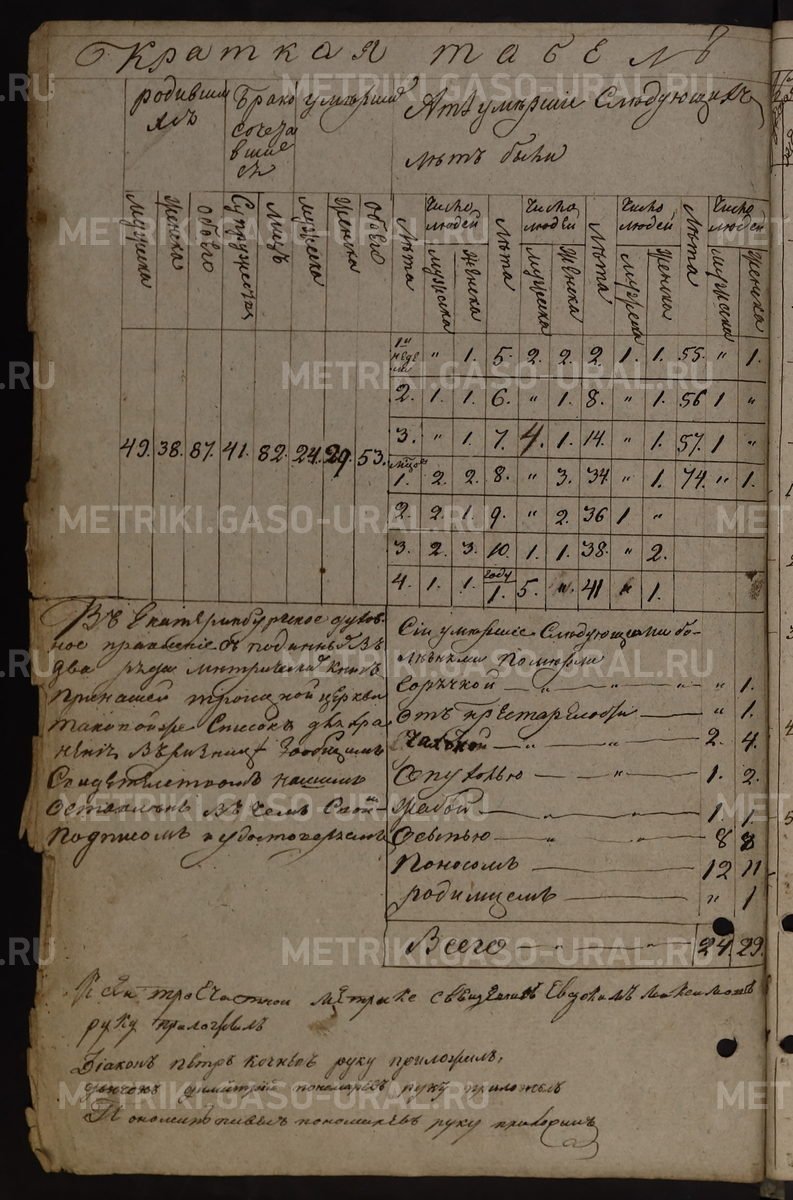 Краткая табель
родивши
ясъ
Брако
сочета
вшие
ся
умершия
А тѣ умѣршіи Слѣдующихъ
лѣтъ были
мужска
женска
обоего
Супружествъ
Лицъ
мужска
женска
обоего
Лѣта
Число людей
мужска
женска
Лѣта
Число людей
мужска
женска
Лѣта
Число людей
мужска
женска
Лѣта
Число людей
мужска
женска
1й недели " 1. 5. 2. 2. 2. 1. 1. 55. " 1.
2. 1. 1. 6. " 1. 8. " 1. 56 1 "
3. " 1. 7. 4. 1. 14. " 1. 57. 1 "
49. 38. 87. 41. 82. 24. 29. 53.
1. 2. 2. 8. " 3. 34 " 1. 74. " 1.
2. 2. 1. 9. " 2. 36 1 "
3. 2. 3. 10. 1. 1. 38. " 2.
4. 1. 1. году 1. 5. " 41 " 1.
Въ Екатеринбургское духов
ное правление съ поданныхъ въ
два ряда метрическихъ книгъ
при нашей троицкой церкви
таковой же Списокъ для хра
нения въ ризнице Зообщимъ
Свидетелством нашимъ
оставленъ въ чемъ Своим
подписомъ и удостоверяемъ
Сіи умершие Слѣдующими бо-
лѣзнями померли
Горячкой " " " " 1.
Отъ престарелости " 1.
Чахоткой " 2. 4.
Опухолью " 1. 2.
Жабой " " 1. 1.
Освпью " " 8 8
Поносомъ " 12 11
родимцемъ " 1
Всего " " " 24. 29.
К сей троечастной метрике священникъ Евдокимъ Максимовъ
руку приложилъ
Діаконъ петръ кочневъ руку приложилъ,
дьячокъ димитрій пономаревъ руку приложилъ
Пономарь павелъ пономаревъ руку приложилъ
METRIKI.GASO-URAL.RU